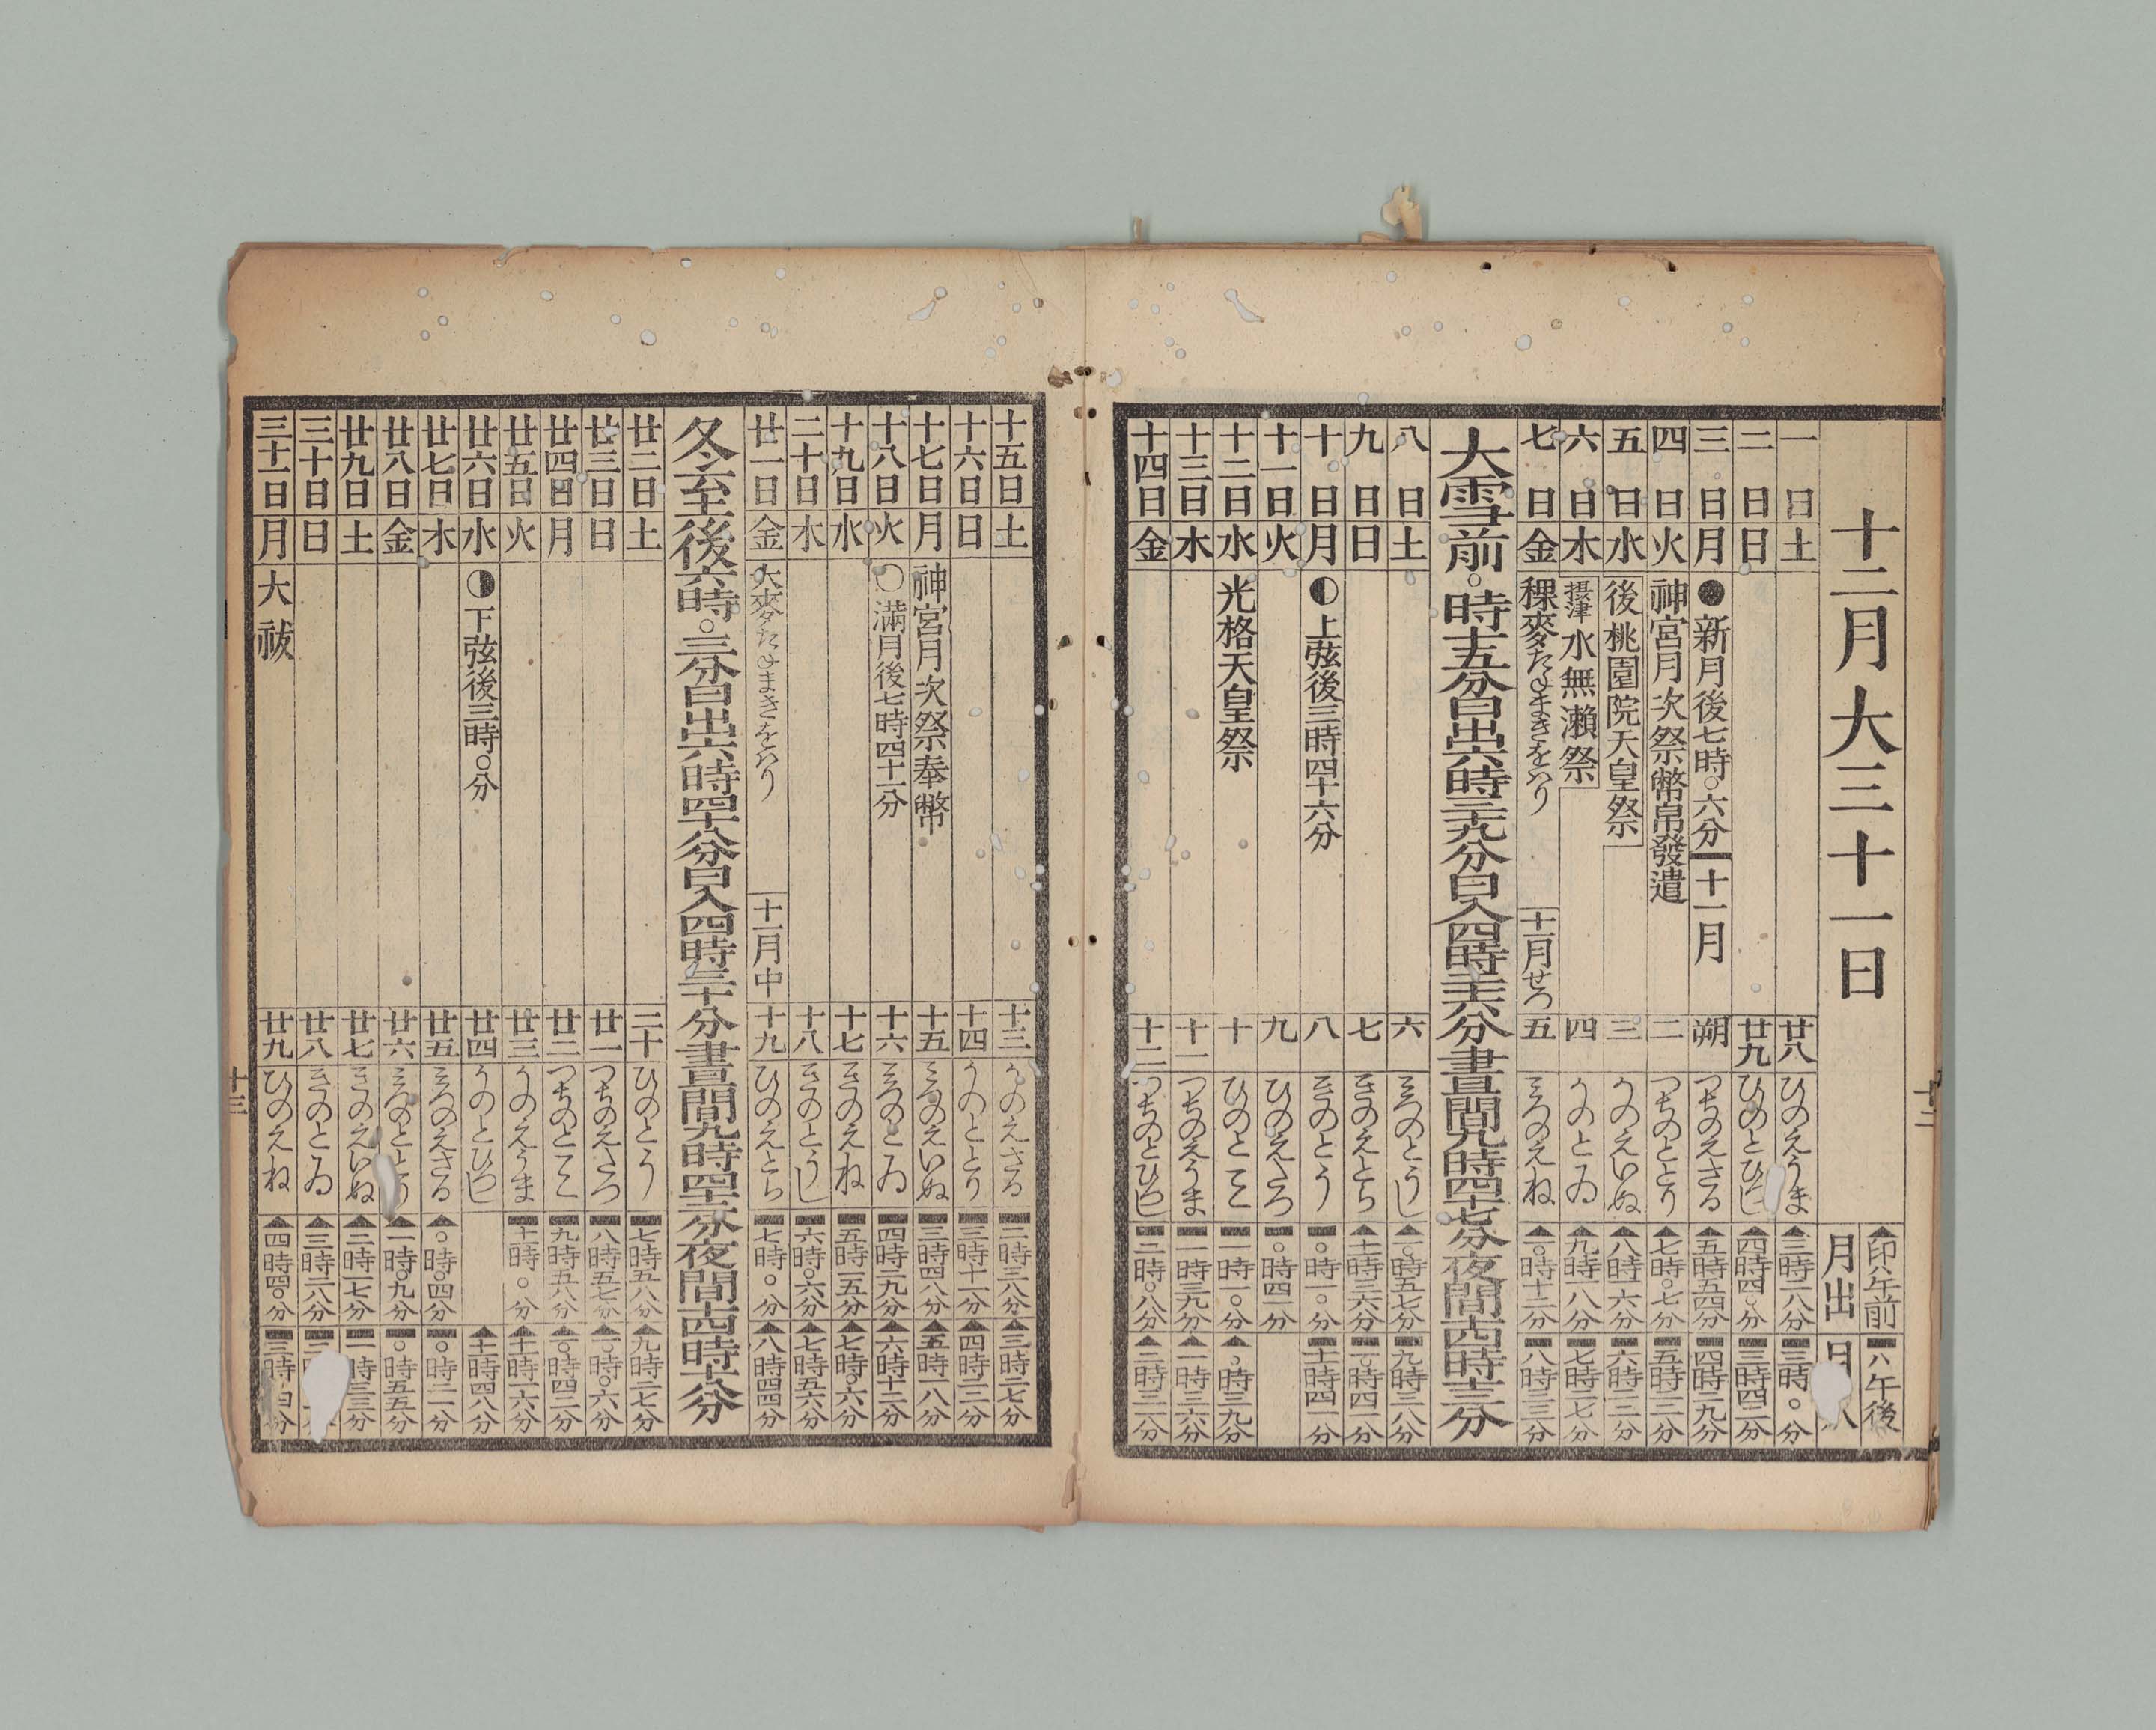 ▲印ハ午前 ▬ハ午後
十二月大三十一日 月出
一日 土 廿八 ひのえうま ▲三時二八分 ▬三時〇分
二日 日 廿九 ひのとひつじ ▲四時四〇分 ▬三時四二分
三日 月 ●新月後七時〇六分 十一月 朔 つちのえさる ▲五時五四分 ▬四時二九分
四日 火 神宮月次祭幣帛發遣 二 つちのととり ▲七時〇七分 ▬五時二二分
五日 水 後桃園院天皇祭 三 かのえいぬ ▲八時一六分 ▬六時二二分
六日 木 摂津水無瀬祭 四 かのとゐ ▲九時一八分 ▬七時二七分
七日 金 稞麥たねまきをハり 十一月せつ 五 みつのえね ▲一〇時十二分 ▬八時三三分
大雪前〇時十五分日出六時三十九分日入四時二十六分晝間九時四十七分夜間十四時十三分
八日 土 六 みつのとうし ▲一〇時五七分 ▬九時三八分
九日 日 七 きのえとら ▲十一時三六分 ▬一〇時四二分
十日 月 ◐上弦後三時四十六分 八 きのとう ▬〇時一〇分 ▬十一時四一分
十一日 火 九 ひのえたつ ▬〇時四一分
十二日 水 光格天皇祭 十 ひのとみ ▬一時一〇分 ▲〇時三九分
十三日 木 十一 つちのえうま ▬一時三九分 ▲一時三六分
十四日 金 十二 つちのとひつじ ▬二時〇八分 ▲二時三二分
十二
十五日 土 十三 かのえさる ▬二時三八分 ▲三時二七分
十六日 日 十四 かのととり ▬三時十一分 ▲四時二三分
十七日 月 神宮月次祭奉幣 十五 みつのえいぬ ▬三時四八分 ▲五時一八分
十八日 火 ○満月後七時四十一分 十六 みつのとゐ ▬四時二九分 ▲六時十二分
十九日 水 十七 きのえね ▬五時一五分 ▲七時〇六分
二十日 木 十八 きのとうし ▬六時〇六分 ▲七時五六分
廿一日 金 大麥たねまきをハり 十一月中 十九 ひのえとら ▬七時〇分 ▲八時四四分
冬至後六時〇三分日出六時四十八分日入四時三十分晝間九時四十二分夜間十四時十八分
廿二日 土 二十 ひのとう ▬七時五八分 ▲九時二七分
廿三日 日 廿一 つちのえたつ ▬八時五七分 ▲一〇時〇六分
廿四日 月 廿二 つちのとみ ▬九時五八分 ▲一〇時四二分
廿五日 火 廿三 かのえうま ▬十一時〇分 ▲十一時一六分
廿六日 水 ◑下弦後三時〇分 廿四 かのとひつじ ▲十一時四八分
廿七日 木 廿五 みつのえさる ▲〇時〇四分 ▬〇時二一分
廿八日 金 廿六 みつのととり ▲一時〇九分 ▬〇時五五分
廿九日 土 廿七 きのえいぬ ▲二時一七分 ▬一時三三分
三十日 日 廿八 きのとゐ ▲三時二八分
三十一日 月 大祓 廿九 ひのえね ▲四時四〇分 ▬三時
十三